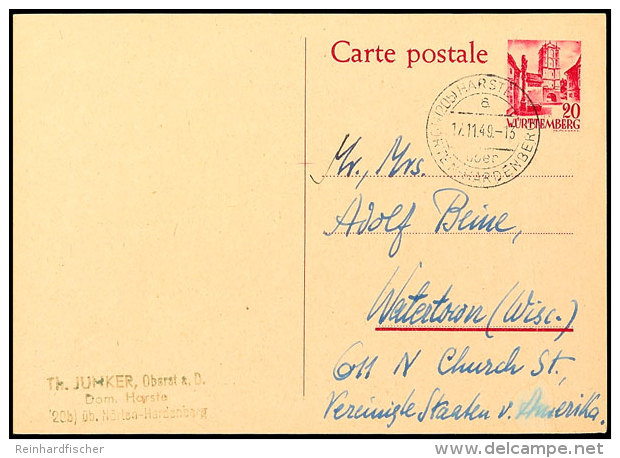 Carte postale
20
WÜRTTEMBERG
(20b) HARSTE
a
17.11.49.-13
über
NÖRTEN-HARDENBERG
Mr., Mrs.
Adolf Beine,
Watertown (Wisc.)
611 N Church St.,
Vereinigte Staaten v. Amerika.
Th. JUNKER, Oberst a. D.
Dom. Harste
(20b) üb. Nörten-Hardenberg
Reinhardfischer
delcampe.net